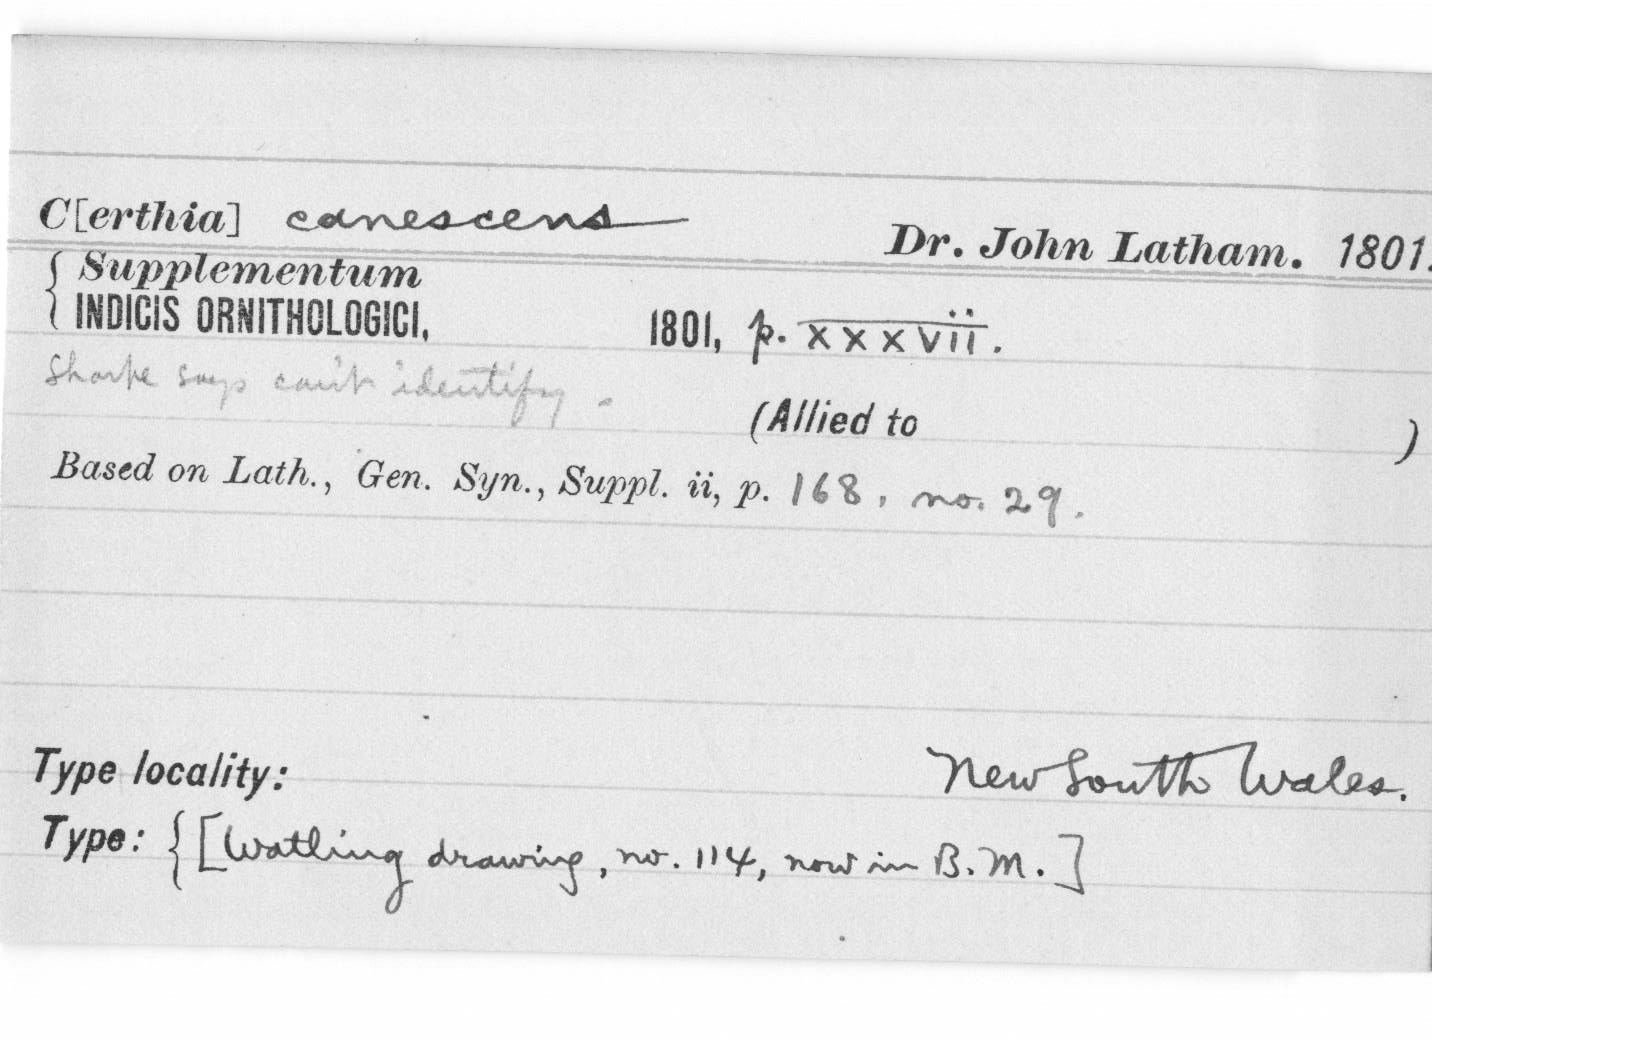 C[erthia] canescens Dr. John Latham. 1801.
{ Supplementum
INDICIS ORNITHOLOGICI, 1801, p. xxxvii.
Sharpe says can't identify.
(Allied to )
Based on Lath., Gen. Syn., Suppl. ii, p. 168, no. 29.
Type locality: New South Wales.
Type: { [Watling drawing, no. 114, now in B.M.]